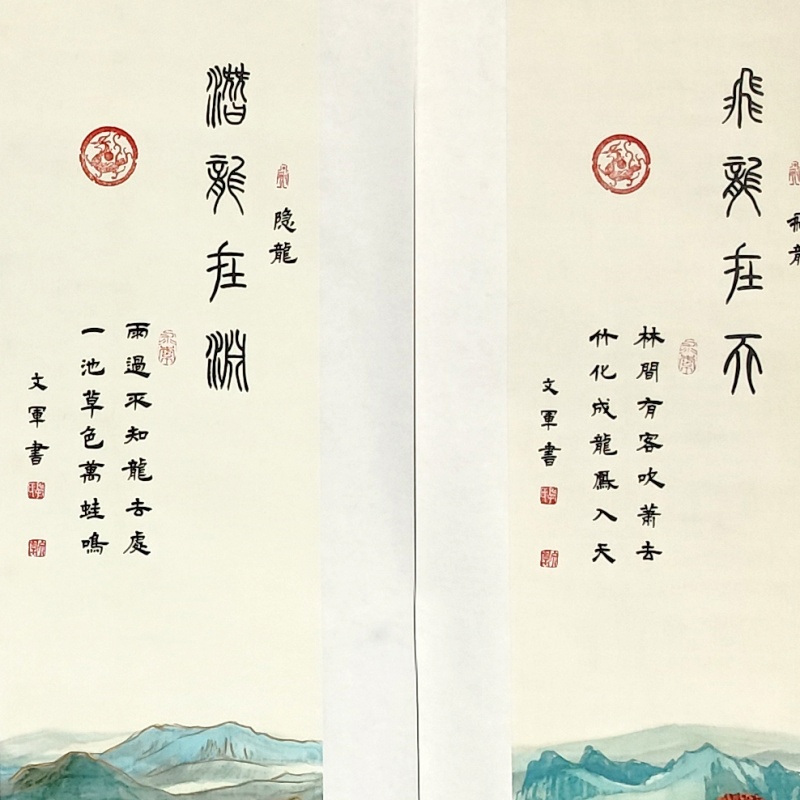 隐龍
潛龍在淵
雨過不知龍去處
一池草色萬蛙鳴
文軍書
飛龍在天
林間有客吹蕭去
竹化成龍鳳入天
文軍書